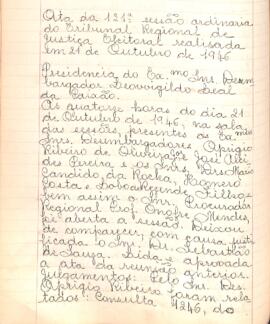 Ata da 121ª sessão ordinaria
do Tribunal Regional de
Justiça Eleitoral realisada
em 21 de Outubro de 1946
Presidencia do Ex.mo Snr. Desem-
bargador Deoovigildo Leal
da Paixão.
As quatorze horas do dia 21
de Outubro de 1946, na sala
das sessões, presentes os Exmos
Snrs. Desembargadores, Aprigio
Ribeiro de Oliveira e José Alci-
des Pereira, e os Snrs. Drs. Mario
Candido da Rocha, Romero
Costa e Lobo Rezende Filho
bem assim o Snr. Procurador
Regional Prof. Onofre Mendes,
foi aberta a sessão. Deixou
de comparecer, com causa justi-
ficada o Snr. Dr. Sebastião
de Souza. Lida e aprovada
a ata da reunião anterior.
Julgamentos: Pelo Snr. Des.
Aprigio Ribeiro foram rela-
tados: Consulta 4246, do